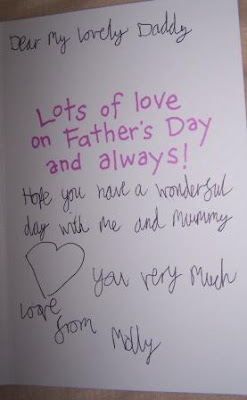 Dear My Lovely Daddy
Lots of love
on Father's Day
and always!
Hope you have a wonderful
day with me and Mummy
you very much
Love
from
Molly